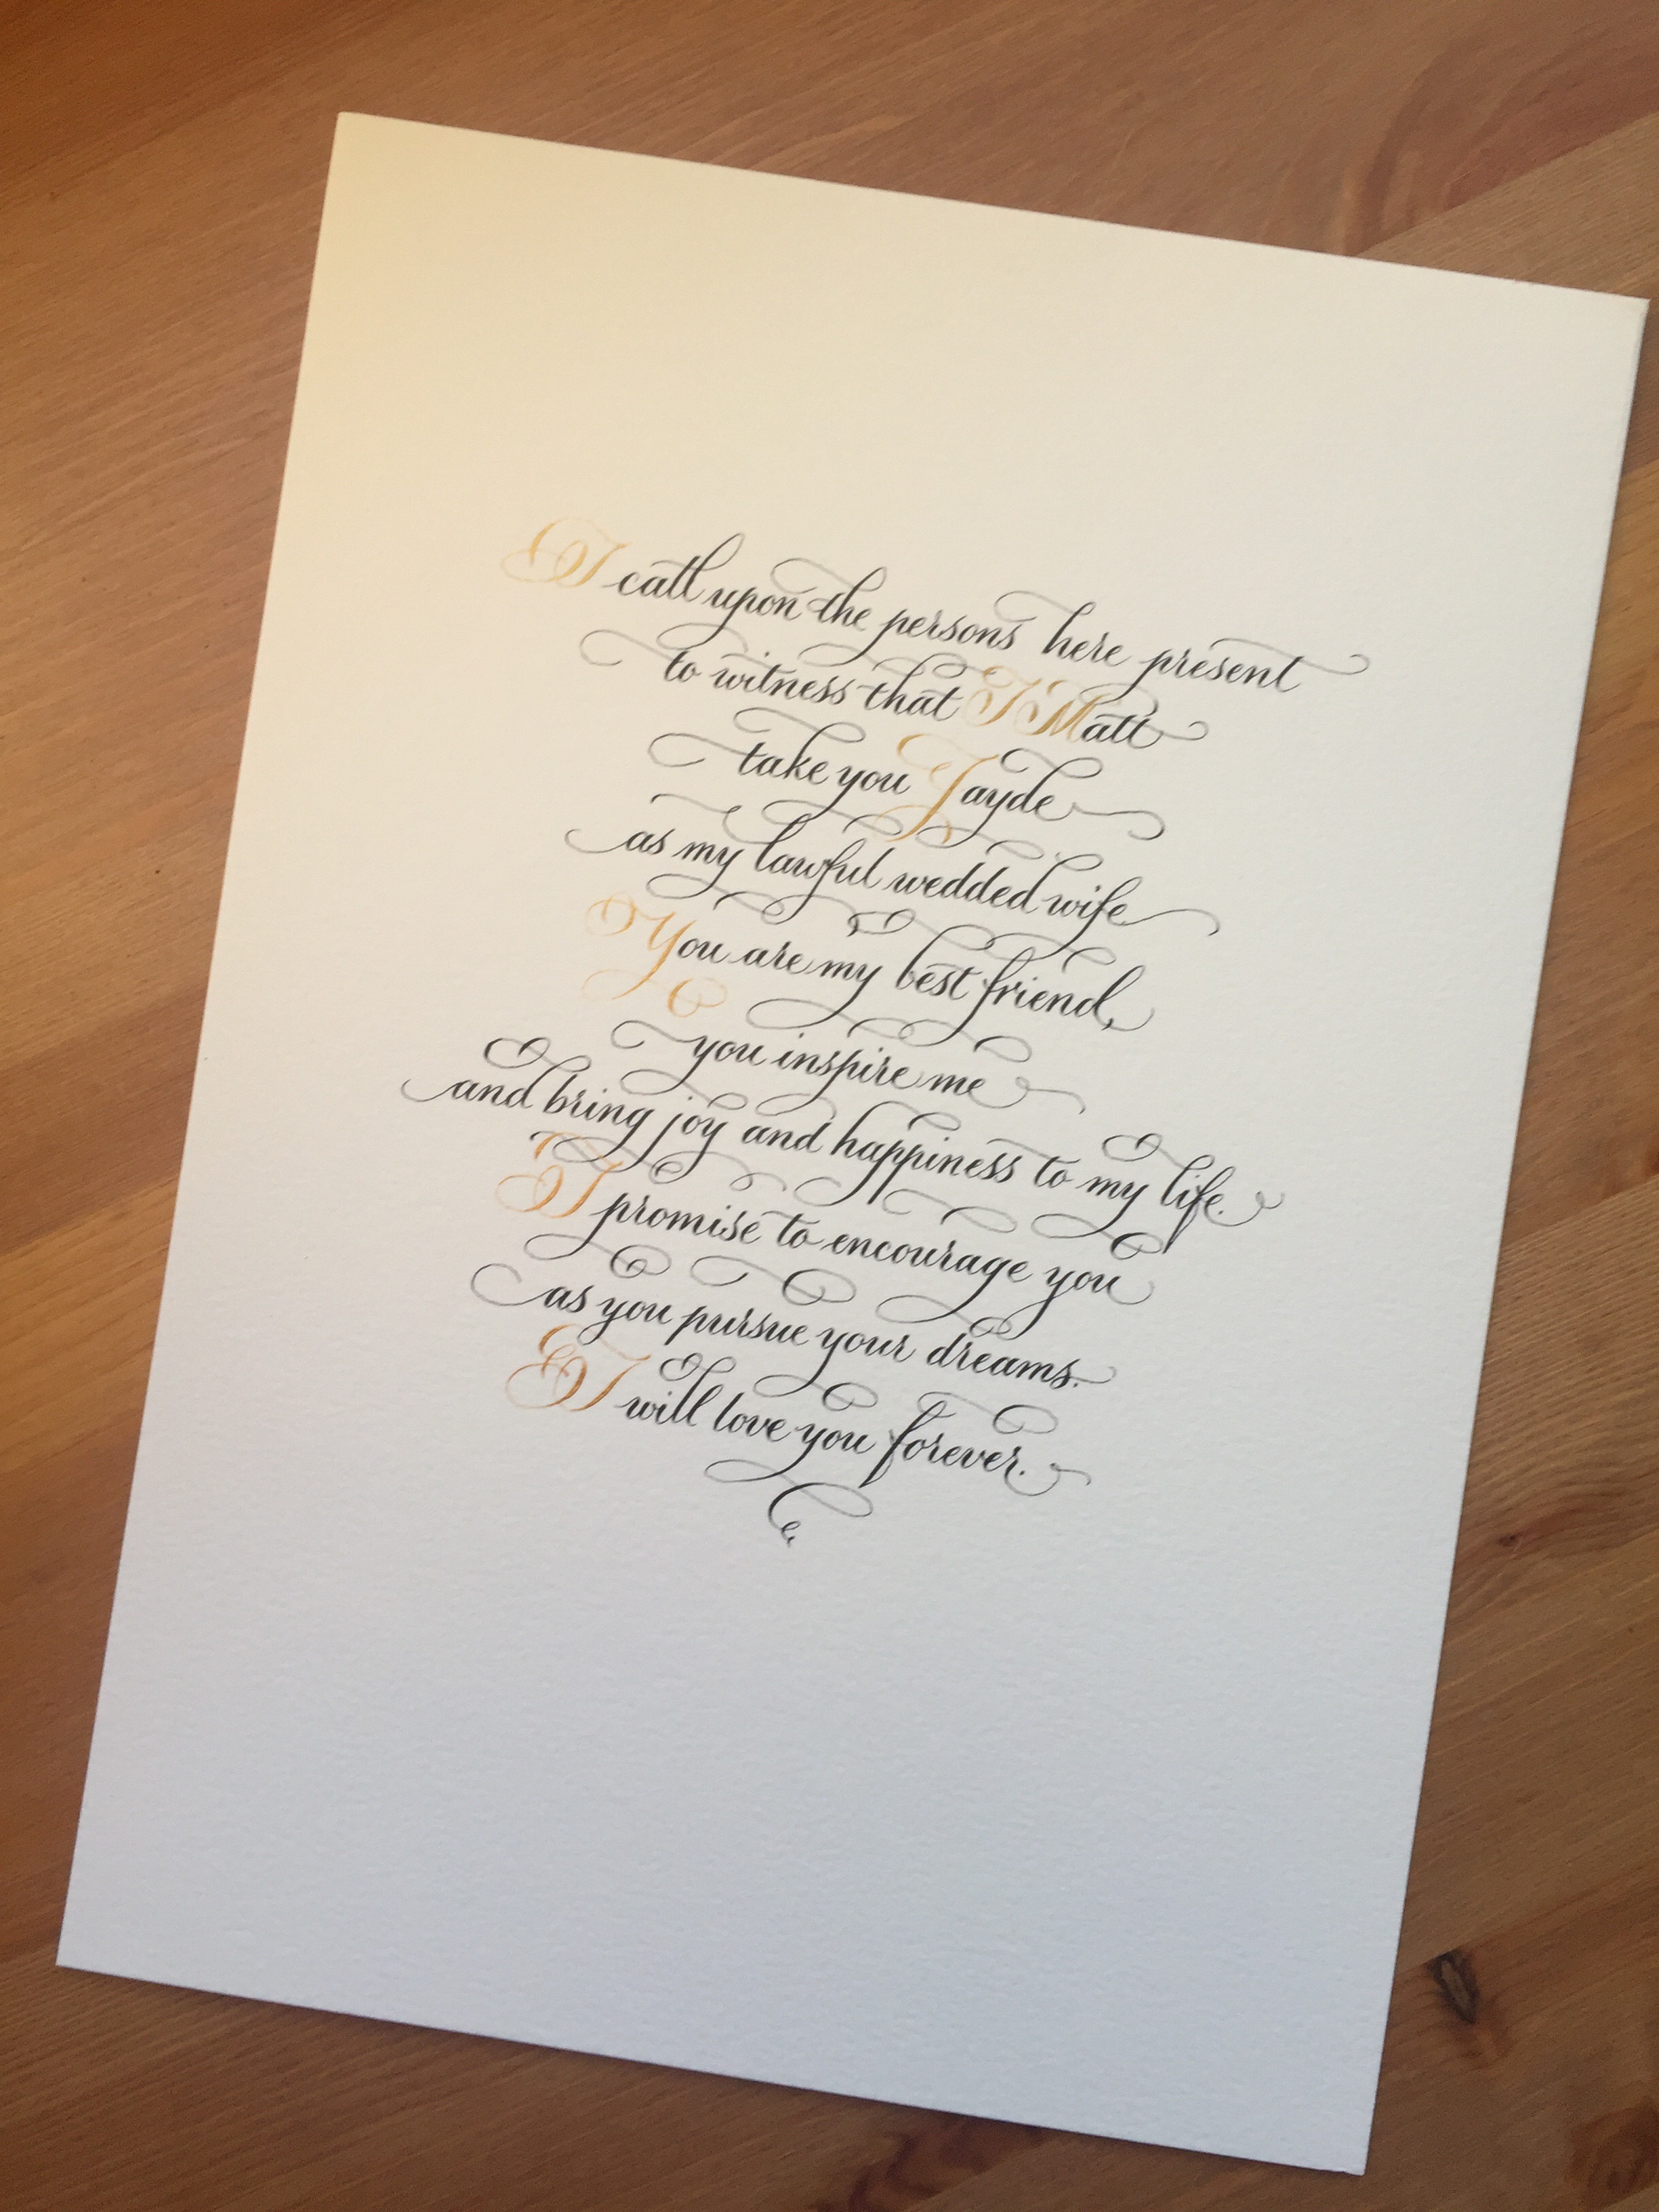 I call upon the persons here present
to witness that I Matt
take you Jayde
as my lawful wedded wife
You are my best friend,
you inspire me
and bring joy and happiness to my life.
I promise to encourage you
as you pursue your dreams.
I will love you forever.